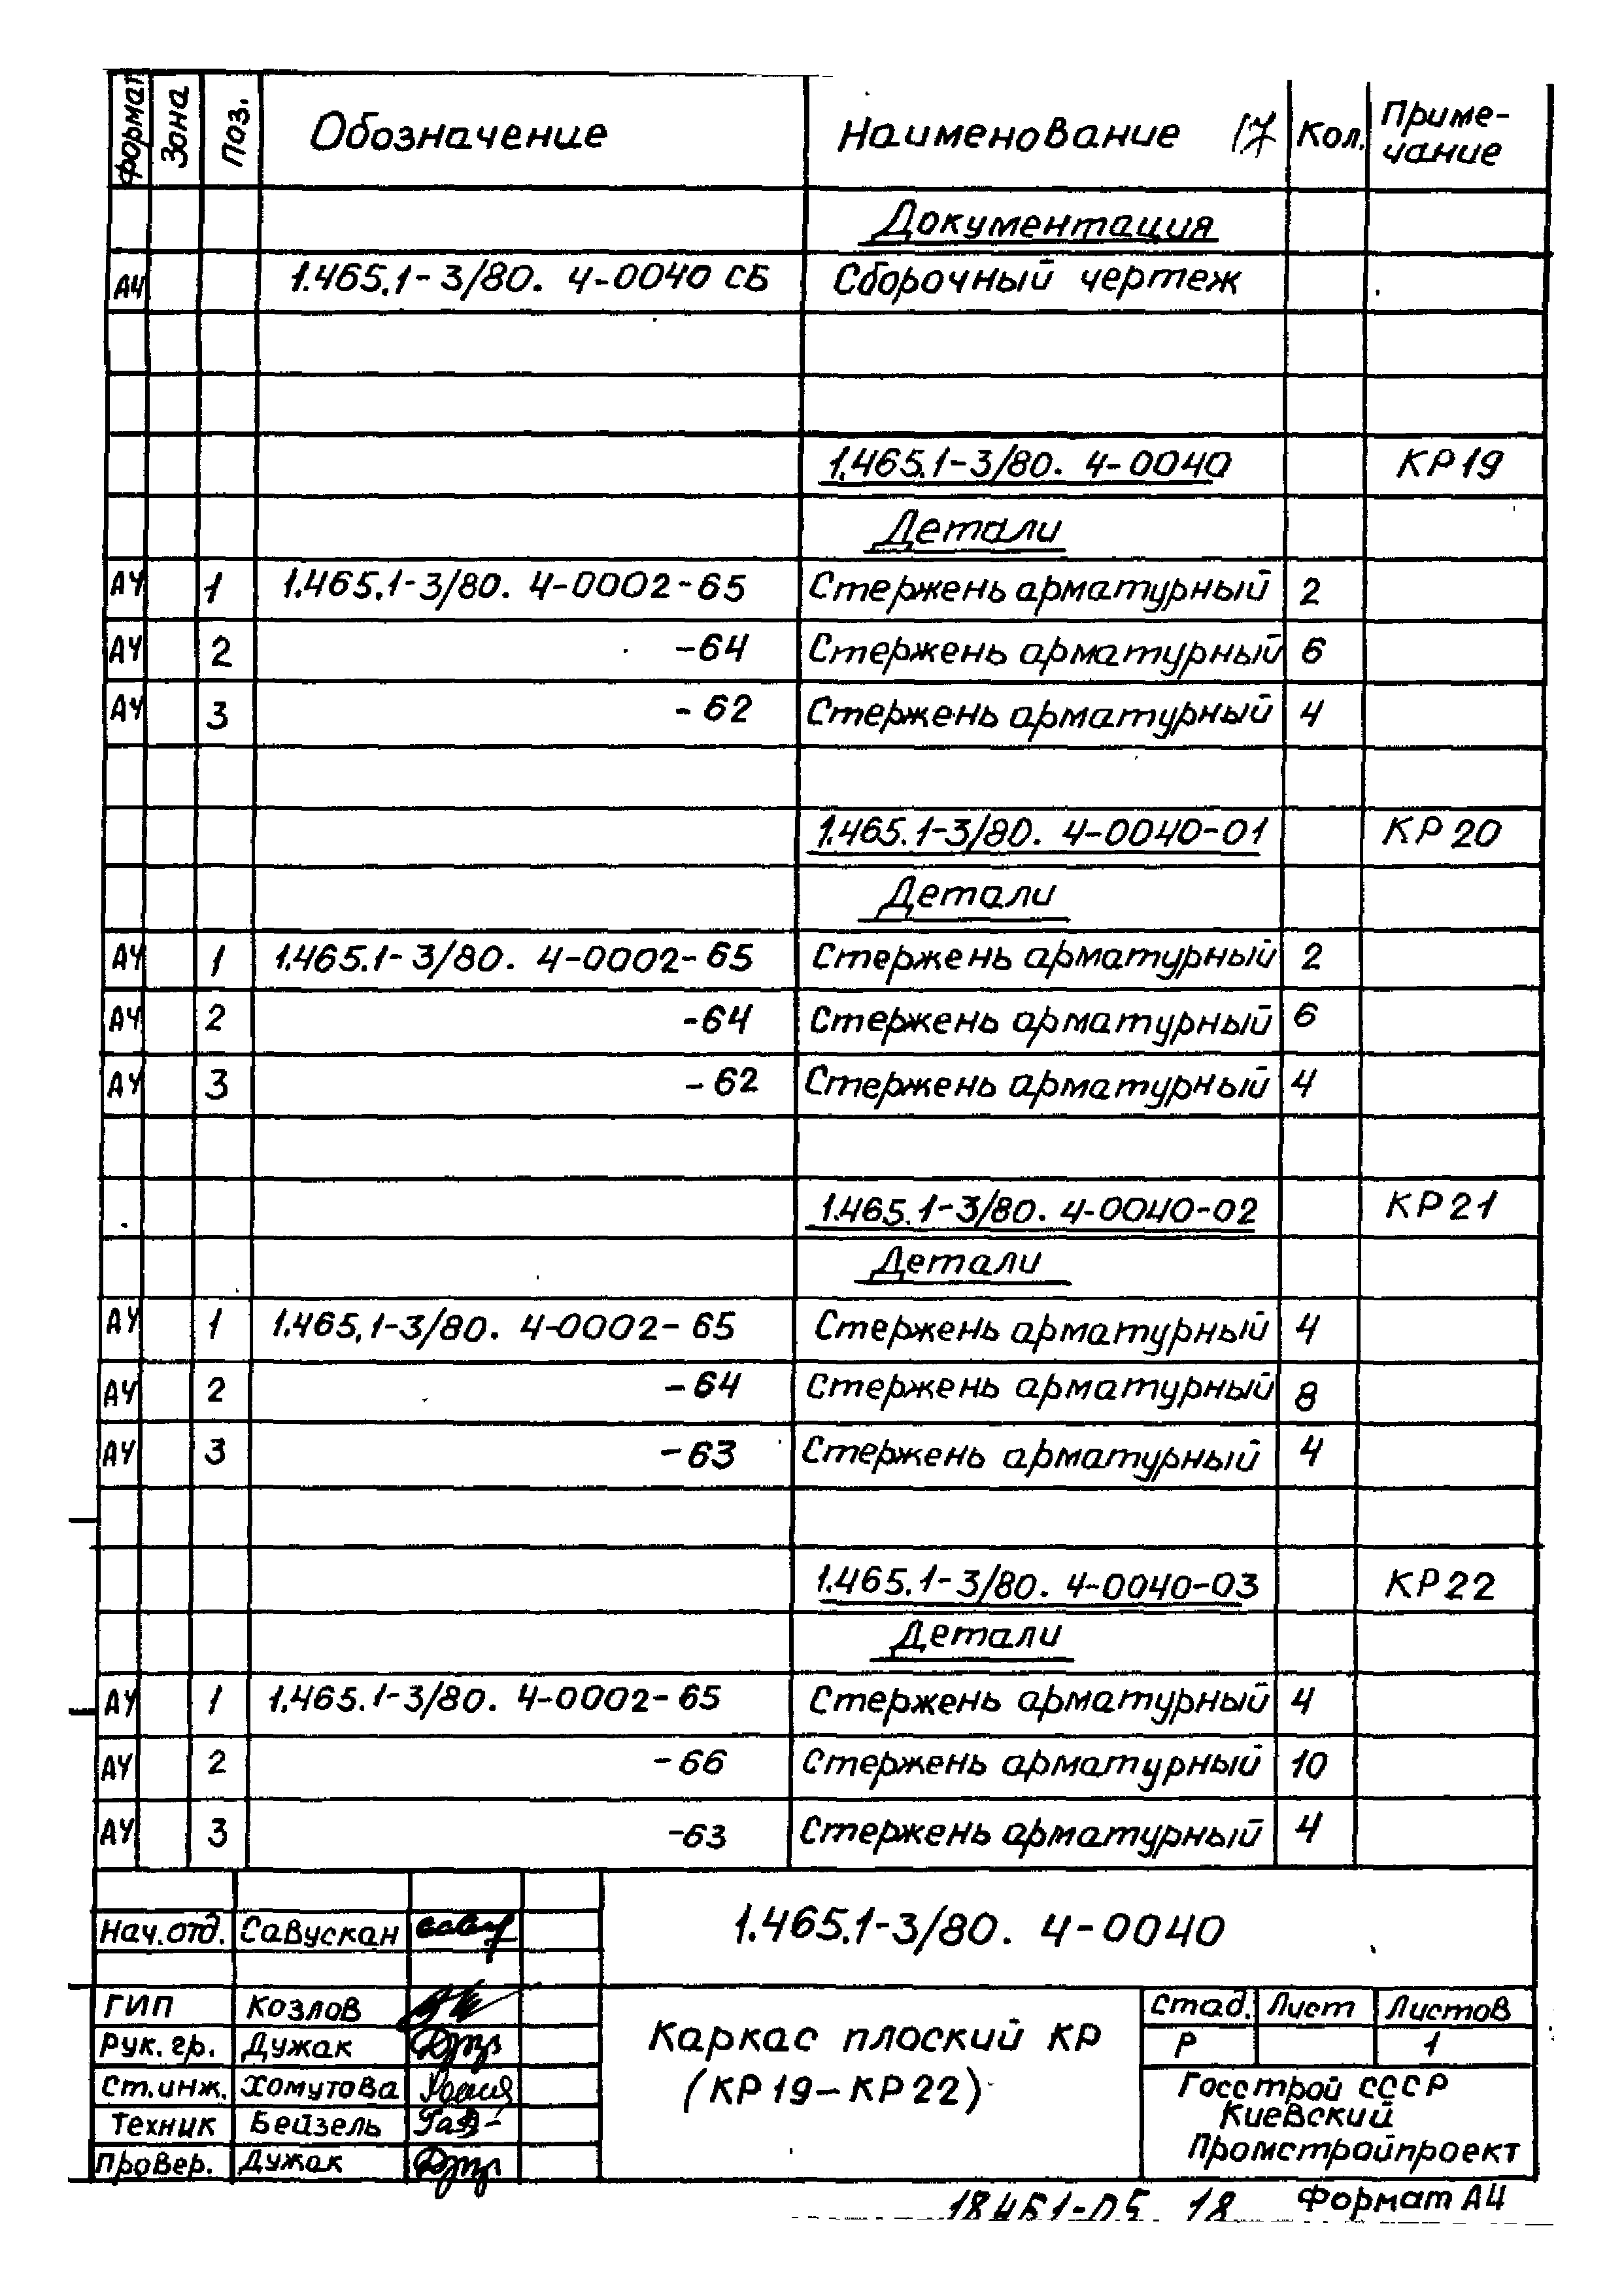 Формат Зона Поз. Обозначение Наименование 17 Кол. Приме-
чание
Документация
А4 1.465.1-3/80. 4-0040 СБ Сборочный чертеж
1.465.1-3/80. 4-0040 КР19
Детали
А4 1 1.465.1-3/80. 4-0002-65 Стержень арматурный 2
А4 2 -64 Стержень арматурный 6
А4 3 -62 Стержень арматурный 4
1.465.1-3/80. 4-0040-01 КР20
Детали
А4 1 1.465.1-3/80. 4-0002-65 Стержень арматурный 2
А4 2 -64 Стержень арматурный 6
А4 3 -62 Стержень арматурный 4
1.465.1-3/80. 4-0040-02 КР21
Детали
А4 1 1.465.1-3/80. 4-0002-65 Стержень арматурный 4
А4 2 -64 Стержень арматурный 8
А4 3 -63 Стержень арматурный 4
1.465.1-3/80. 4-0040-03 КР22
Детали
А4 1 1.465.1-3/80. 4-0002-65 Стержень арматурный 4
А4 2 -66 Стержень арматурный 10
А4 3 -63 Стержень арматурный 4
1.465.1-3/80. 4-0040
Нач.отд. Савускан
ГИП Козлов
Рук. гр. Дужак
Ст.инж. Хомутова
Техник Бейзель
Провер. Дужак
Каркас плоский КР
(КР19-КР22)
Стад. Лист Листов
Р 1
Госстрой СССР
Киевский
Промстройпроект
18461-05 18 Формат А4